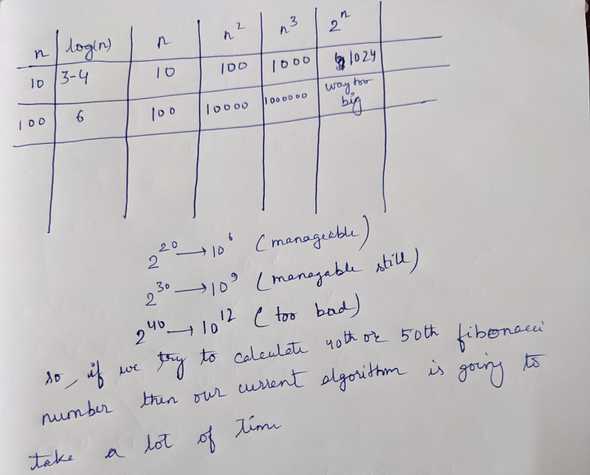 n log(n) n n² n³ 2ⁿ
10 3-4 10 100 1000 1024
100 6 100 10000 1000000 way too big
2²⁰ → 10⁶ (manageable)
2³⁰ → 10⁹ (managable still)
2⁴⁰ → 10¹² (too bad)
so, if we try to calculate 40th or 50th fibonacci
number then our current algorithm is going to
take a lot of time